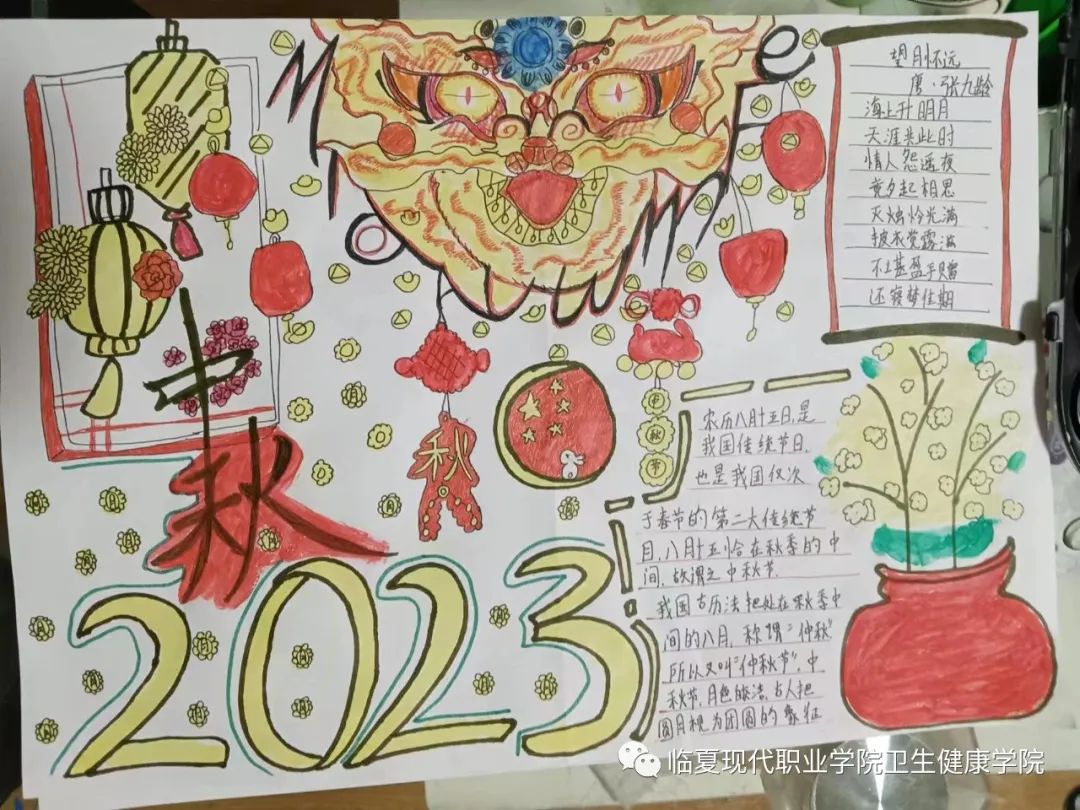 M e
o F
中
秋
2023
秋
中
秋
节
望月怀远
唐·张九龄
海上升明月
天涯共此时
情人怨遥夜
竟夕起相思
灭烛怜光满
披衣觉露滋
不堪盈手赠
还寝梦佳期
农历八月十五日,是
我国传统节日,
也是我国仅次
于春节的第二大传统节
日,八月十五恰在秋季的中
间,故谓之中秋节.
我国古历法把处在秋季中
间的八月,称谓"仲秋"
所以又叫"仲秋节".中
秋节,月色皎洁,古人把
圆月视为团圆的象征
临夏现代职业学院卫生健康学院